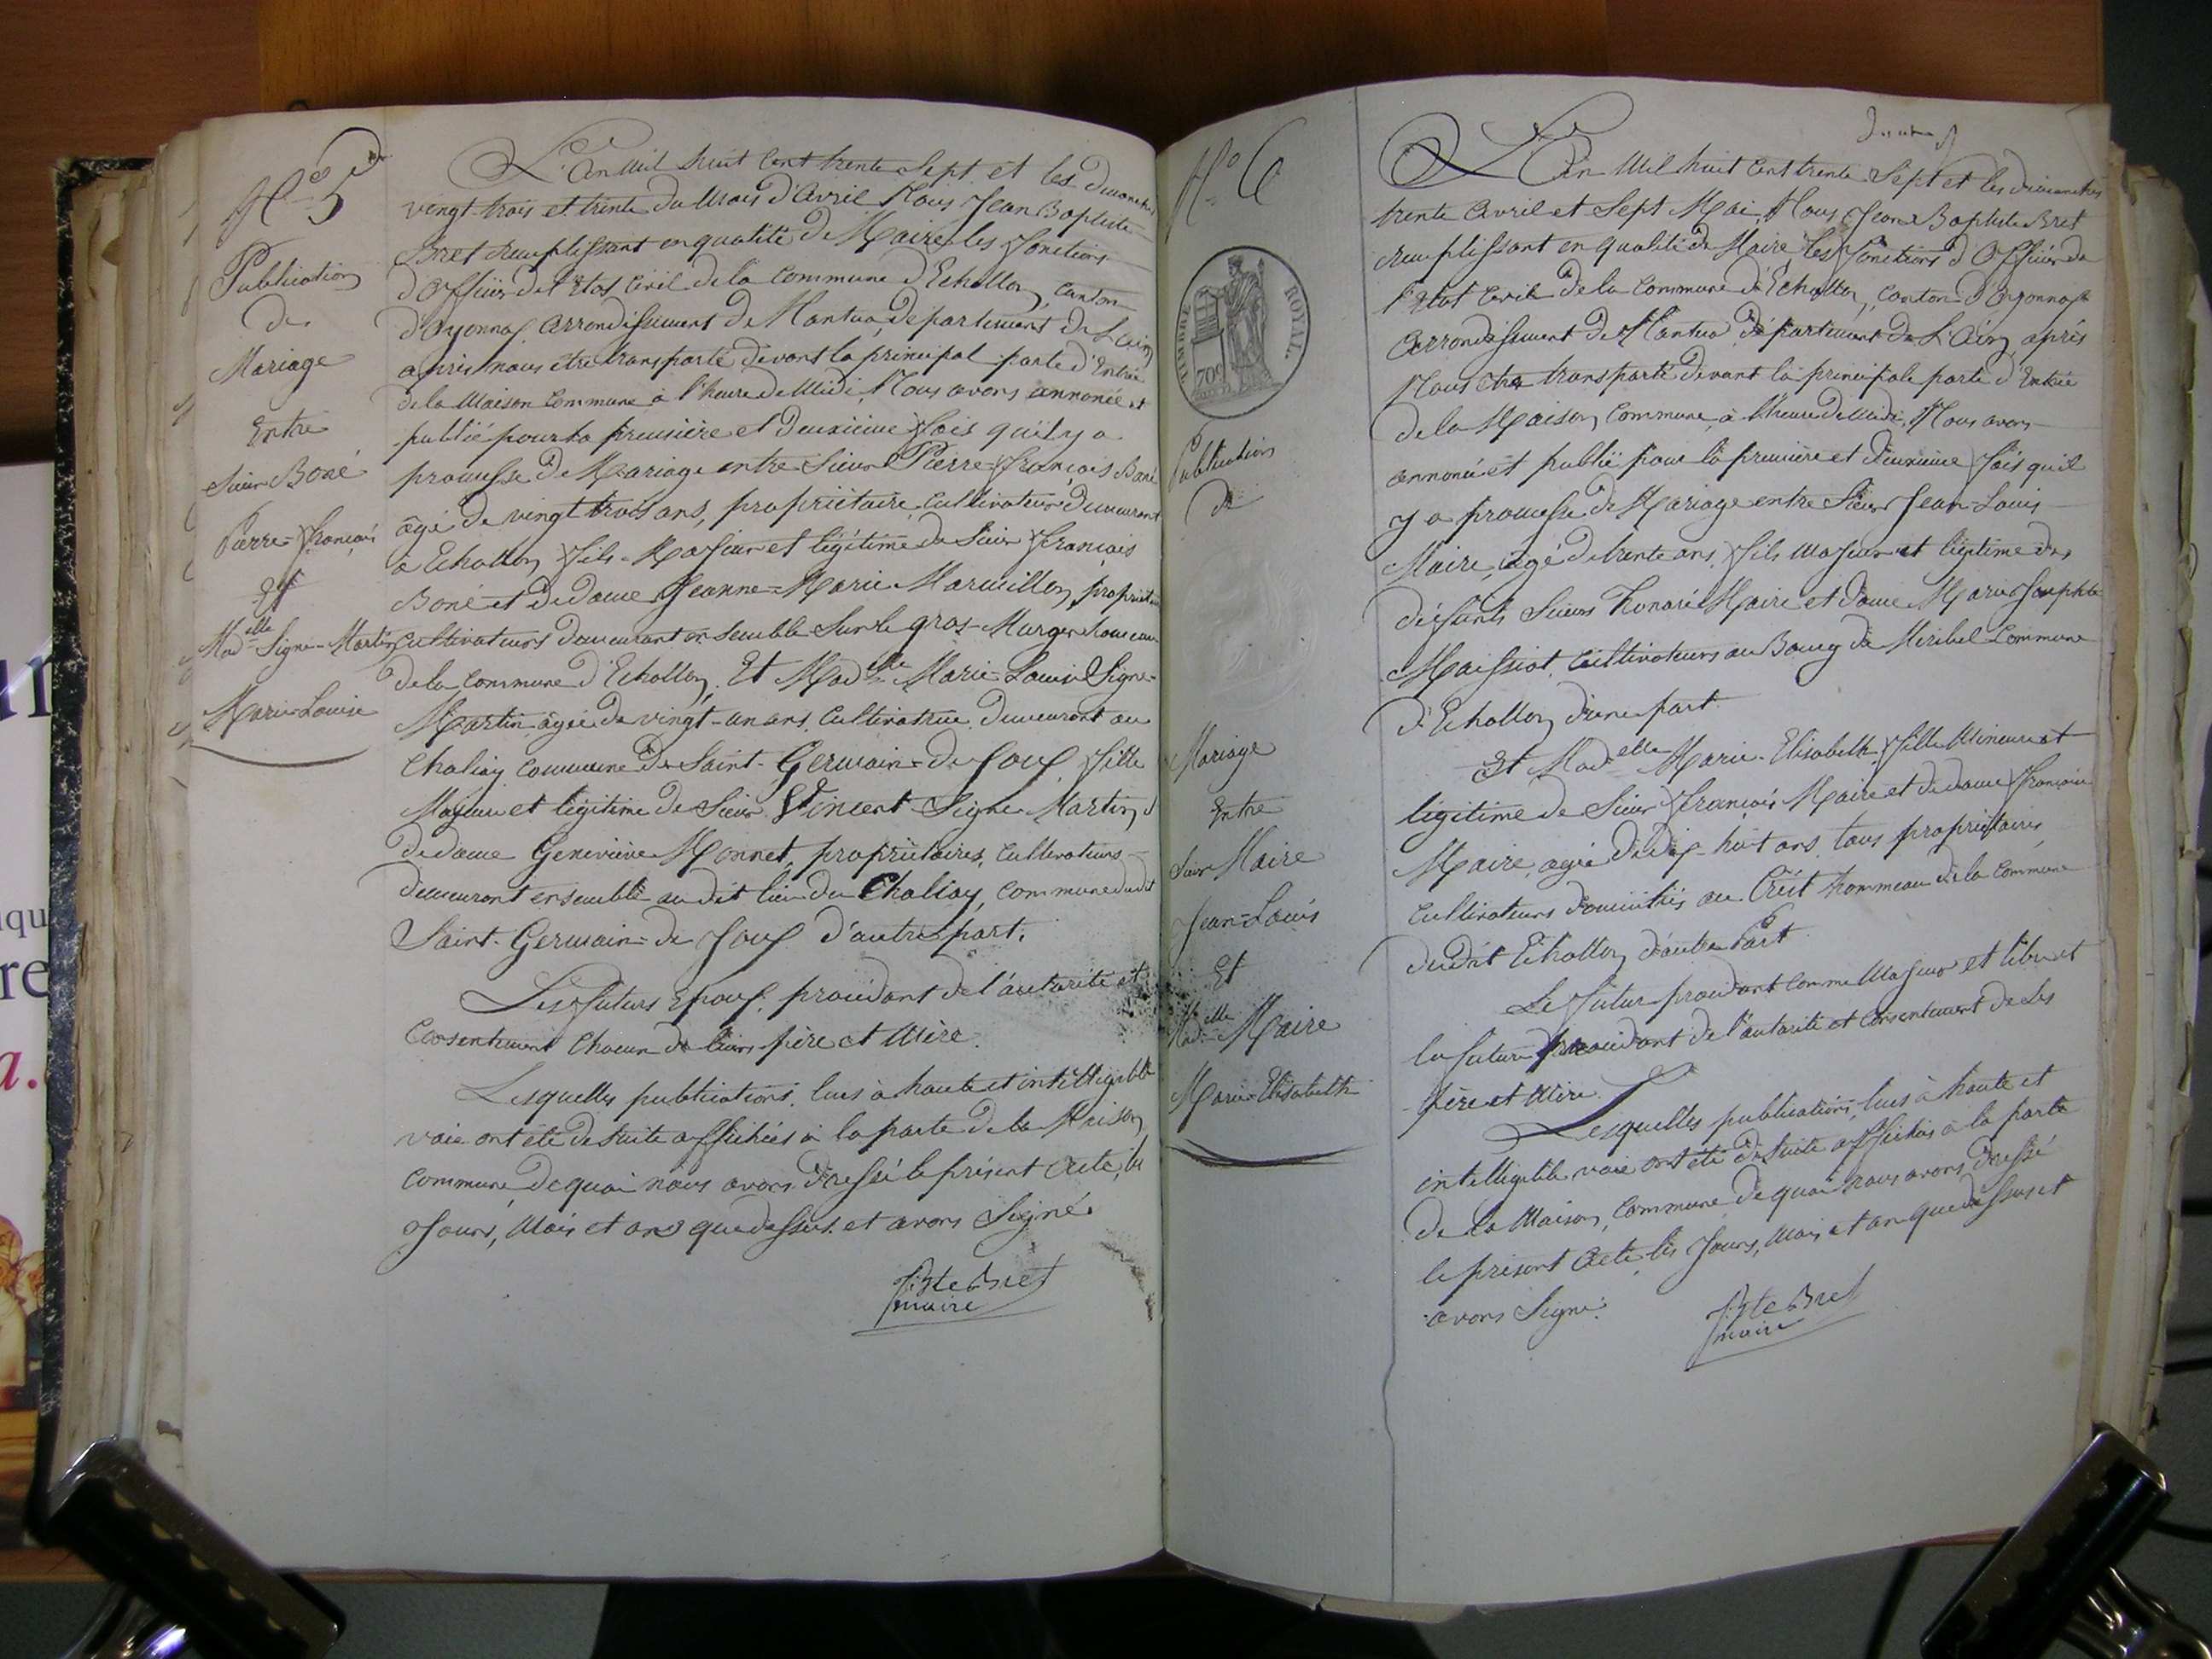 N.o 5
Publication
de
Mariage
Entre
Sieur Boné
Pierre=François
Et
Mad.elle Signe-Martin
Marie Louise
L'An Mil huit Cent trente Sept et les dimanches
vingt-trois et trente du Mois d'Avril Nous Jean Baptiste
Bret remplissant en qualité de Maire les fonctions
d'Officier de l'Etat Civil de la Commune d'Echallon, Canton
d'Oyonnax arrondissement de Nantua, département de L'Ain,
après nous être transporté devant la principal porte d'Entrée
de la Maison Commune à l'heure de Midi, Nous avons annoncé et
publié pour la première et deuxième fois qu'il y a
promesse de Mariage entre Sieur Pierre=François Boné
âgé de vingt trois ans, propriétaire cultivateur demeurant
à Echallon, fils-Majeur et légitime du Sieur François
Boné et de dame Jeanne=Marie Marmillon propriétaires
cultivateurs demeurant ensemble Sur le gros-Murger hameau
de la Commune d'Echallon, Et Mad.elle Marie Louise Signe-
Martin âgée de vingt-un ans Cultivatrice demeurant au
Chaliay Commune de Saint-Germain=de Joux, fille
Majeure et légitime de Sieur Vincent Signe Martin et
de dame Geneviève Monnet, propriétaires, cultivateurs
demeurant ensemble au dit lieu du Chaliay, Commune dudit
Saint-Germain=de Joux d'autre part.
Les futurs Epoux, procédant de l'autorité et
Consentement Chacun de leurs père et Mère.
Lesquelles publications, lues à haute et intélligible
voie ont été de suite affichées à la porte de la Maison
Commune de quoi nous avons dressé le présent Acte, les
Jours, Mois et an que dessus et avons Signé.
J Bte Bret
maire
N.o 6
TIMBRE ROYAL.
70c
Publication
de
Mariage
Entre
Sieur Maire
Jean=Louis
Et
Mad.elle Maire
Marie=Elisabeth
L'An Mil huit Cent trente Sept et les dimanches
trente Avril et Sept Mai, Nous Jean Baptiste Bret
remplissant en qualité de Maire, les fonctions d'Officier de
l'Etat Civil de la Commune d'Echallon, Canton d'Oyonnax
Arrondissement de Nantua département de L'Ain, après
Nous être transporté devant la principale porte d'Entrée
de la Maison Commune, à l'heure de Midi, Nous avons
annoncé et publié pour la première et deuxième fois qu'il
y a promesse de Mariage entre Sieur Jean-Louis
Maire, âgé de trente ans, fils Majeur et légitime des
défunts Sieurs honoré Maire et dame Marie Josephte
Maissiat, Cultivateurs au Bourg de Miribel Commune
d'Echallon, d'une part.
Et Mad.elle Marie-Elisabeth, fille Mineure et
légitime de Sieur François Maire et de dame Françoise
Maire, agée de dix-huit ans, tous propriétaires
Cultivateurs domiciliés au Crêt hammeau de la Commune
dudit Echallon, d'autre Part.
Le futur procédant Comme Majeur et libre et
la future procédant de l'autorité et Consentement de Ses
père et Mère.
Lesquelles publications, lues à haute et
intelligible voie ont été de Suite affichées à la porte
de la Maison, Commune de quoi nous avons dressé
le présent Acte, les Jours, Mois et an que dessus et
avons Signé.
J Bte Bret
maire